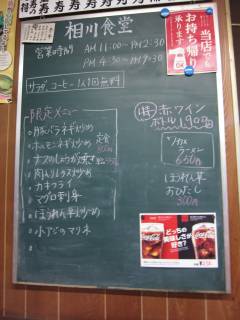 寿 寿 寿 寿 寿 寿
当店でも
お持ち帰り
承ります
相川食堂
営業時間
AM 11:00 ~ PM 2:30
PM 4:30 ~ PM 9:30
サラダ、コーヒー 1人1回無料
限定メニュー
豚バラネギ炒め
ホルモンネギ炒め
ナスのしょうが焼き
肉入りレタス炒め
カキフライ
マグロ刺身
ほうれん草炒め
小アジのマリネ
定食
(特)赤ワイン
ボトル 1,900円
ラーメン
650円
ほうれん草
おひたし
300円
どっちの
美味しさが
好き?
Coca-Cola